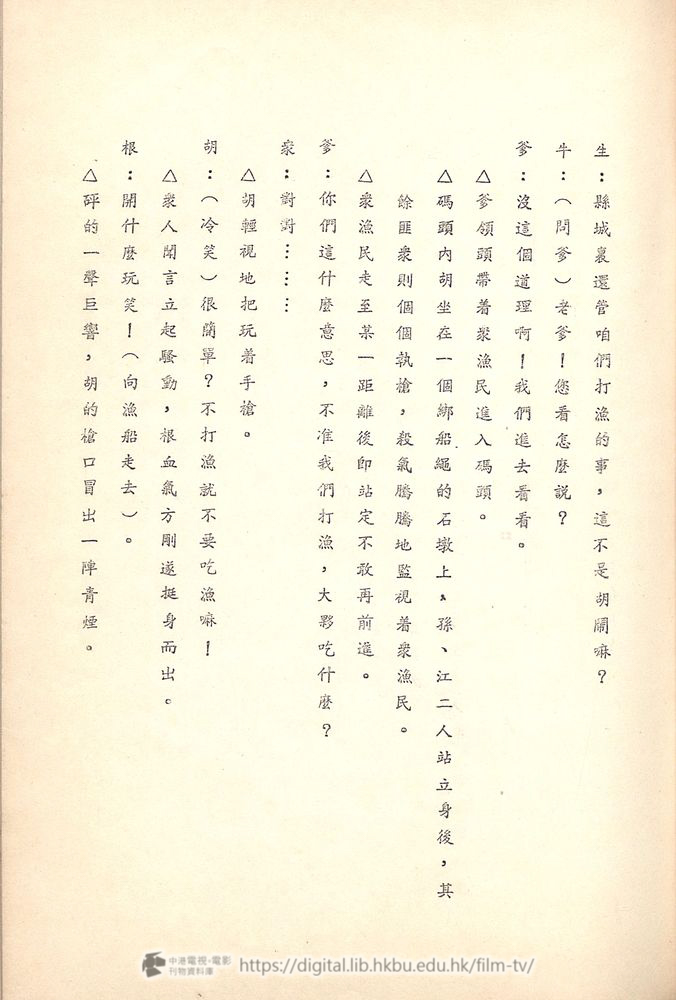 生：縣城裏還管咱們打漁的事，這不是胡鬧嘛？
牛：（問爹）老爹！您看怎麼說？
爹：沒這個道理啊！我們進去看看。
△爹領頭帶着衆漁民進入碼頭。
△碼頭內胡坐在一個綁船繩的石墩上，孫、江二人站立身後，其
餘匪衆則個個執槍，殺氣騰騰地監視着衆漁民。
△衆漁民走至某一距離後即站定不敢再前進。
爹：你們這什麼意思，不准我們打漁，大夥吃什麼？
衆：對對……
△胡輕視地把玩着手槍。
胡：（冷笑）很簡單？不打漁就不要吃漁嘛！
△衆人聞言立起騷動，根血氣方剛遂挺身而出。
根：開什麼玩笑！（向漁船走去）。
△砰的一聲巨響，胡的槍口冒出一陣青煙。
中港電視·電影
刊物資料庫
https://digital.lib.hkbu.edu.hk/film-tv/